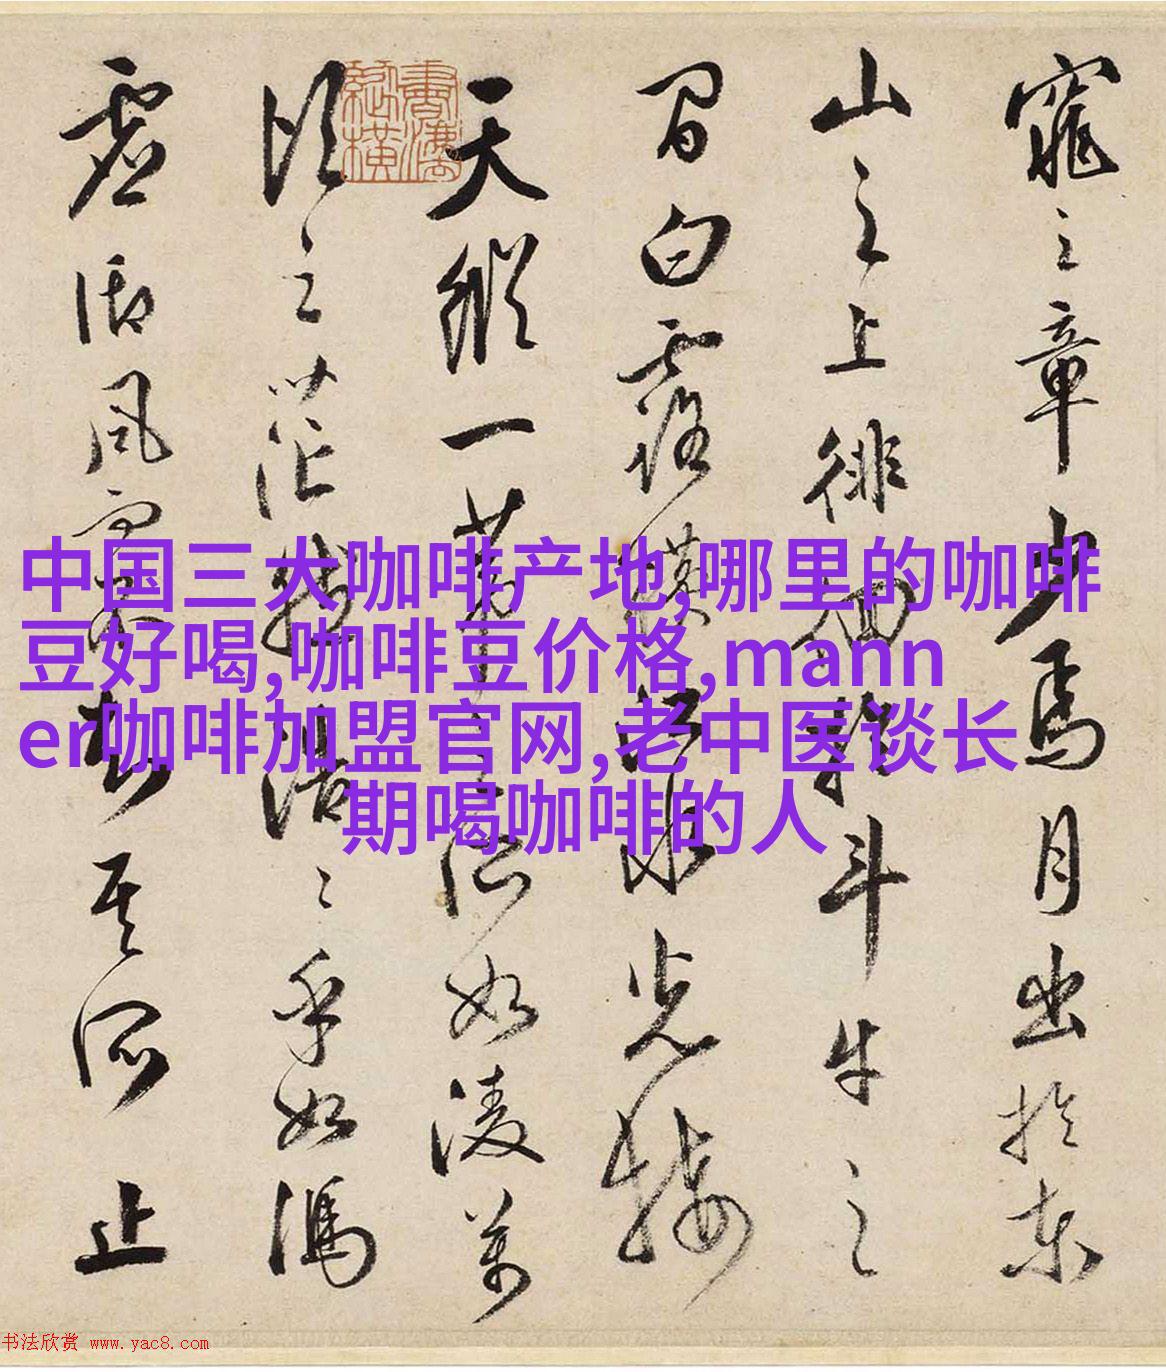 窕之章少焉月出於東
山之上徘徊於斗牛之
間白露横江水光接
天縱一葦之所如凌萬
頃之茫然浩〻乎如馮
虚御風而不知其所止
中国三大咖啡产地,哪里的咖啡
豆好喝,咖啡豆价格,mann
er咖啡加盟官网,老中医谈长
期喝咖啡的人
书法欣赏 www.yac8.com